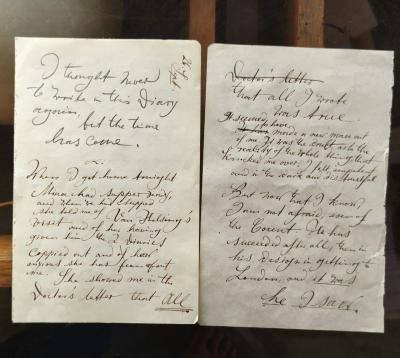 26 Sept
I thought never
to write in this Diary
again,
but the time
has come.
When I got home tonight
Mina had supper ready,
and when we had supped
she told me of Van Helsing's
visit and of her having
given him the Diaries
Coppied out and of how
anxious she has been about
me. She showed me in the
Doctor's letter that All
Doctor's letter
that all I wrote
was true.
It seemed to have
made a new man out
of me. It was the doubt as to the
reality of the whole thing that
Knocked me over. I felt impotent
and in the dark and distrustful
But now that I know,
I am not afraid, even of
the Count. He has
succeeded after all, then in
his design in getting to
London, and it was
he I saw.